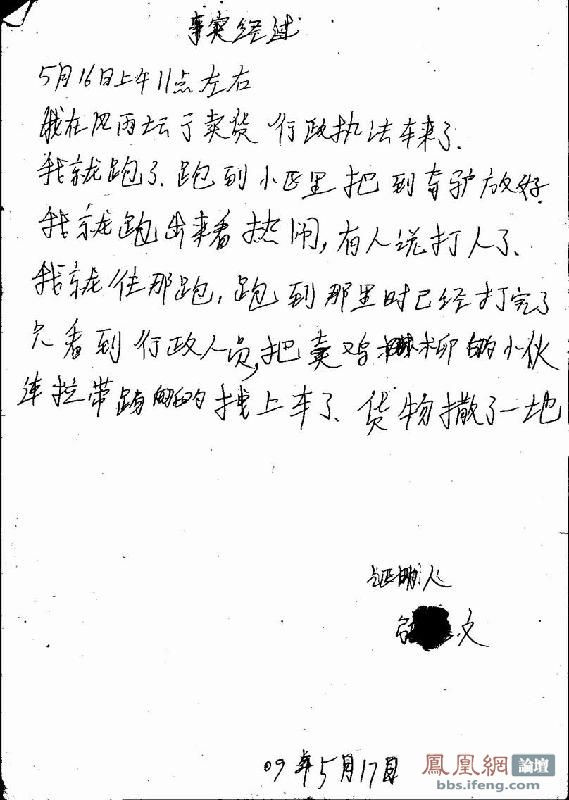 事实经过
5月16日上午11点左右
我在风雨坛于卖货 行政执法车来了.
我就跑了.跑到小区里 把到奇驴放好.
我就跑出来看热闹,有人说打人了.
我就往那跑,跑到那里时已经打完了
只看到行政人员,把卖鸡柳的小伙
连拉带的拽上车了.货物撒了一地
证明人
文
09年5月17日
鳳凰網 論壇
bbs.ifeng.com